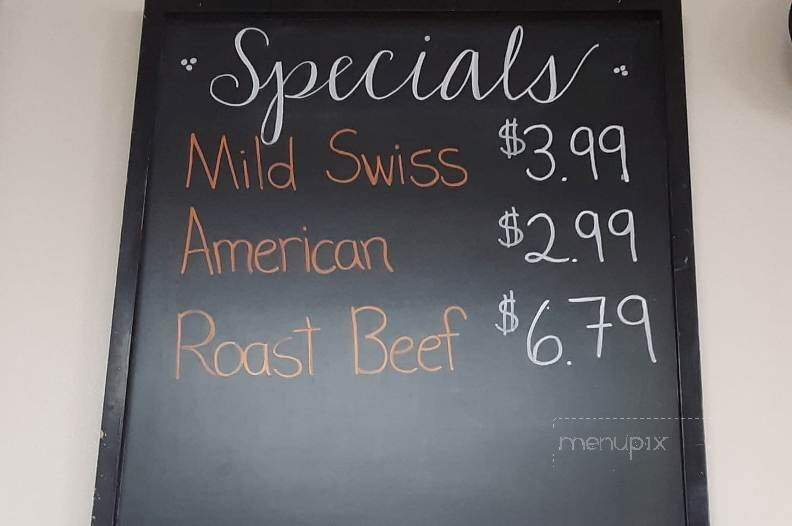 Specials
Mild Swiss $3.99
American $2.99
Roast Beef $6.79
menupix